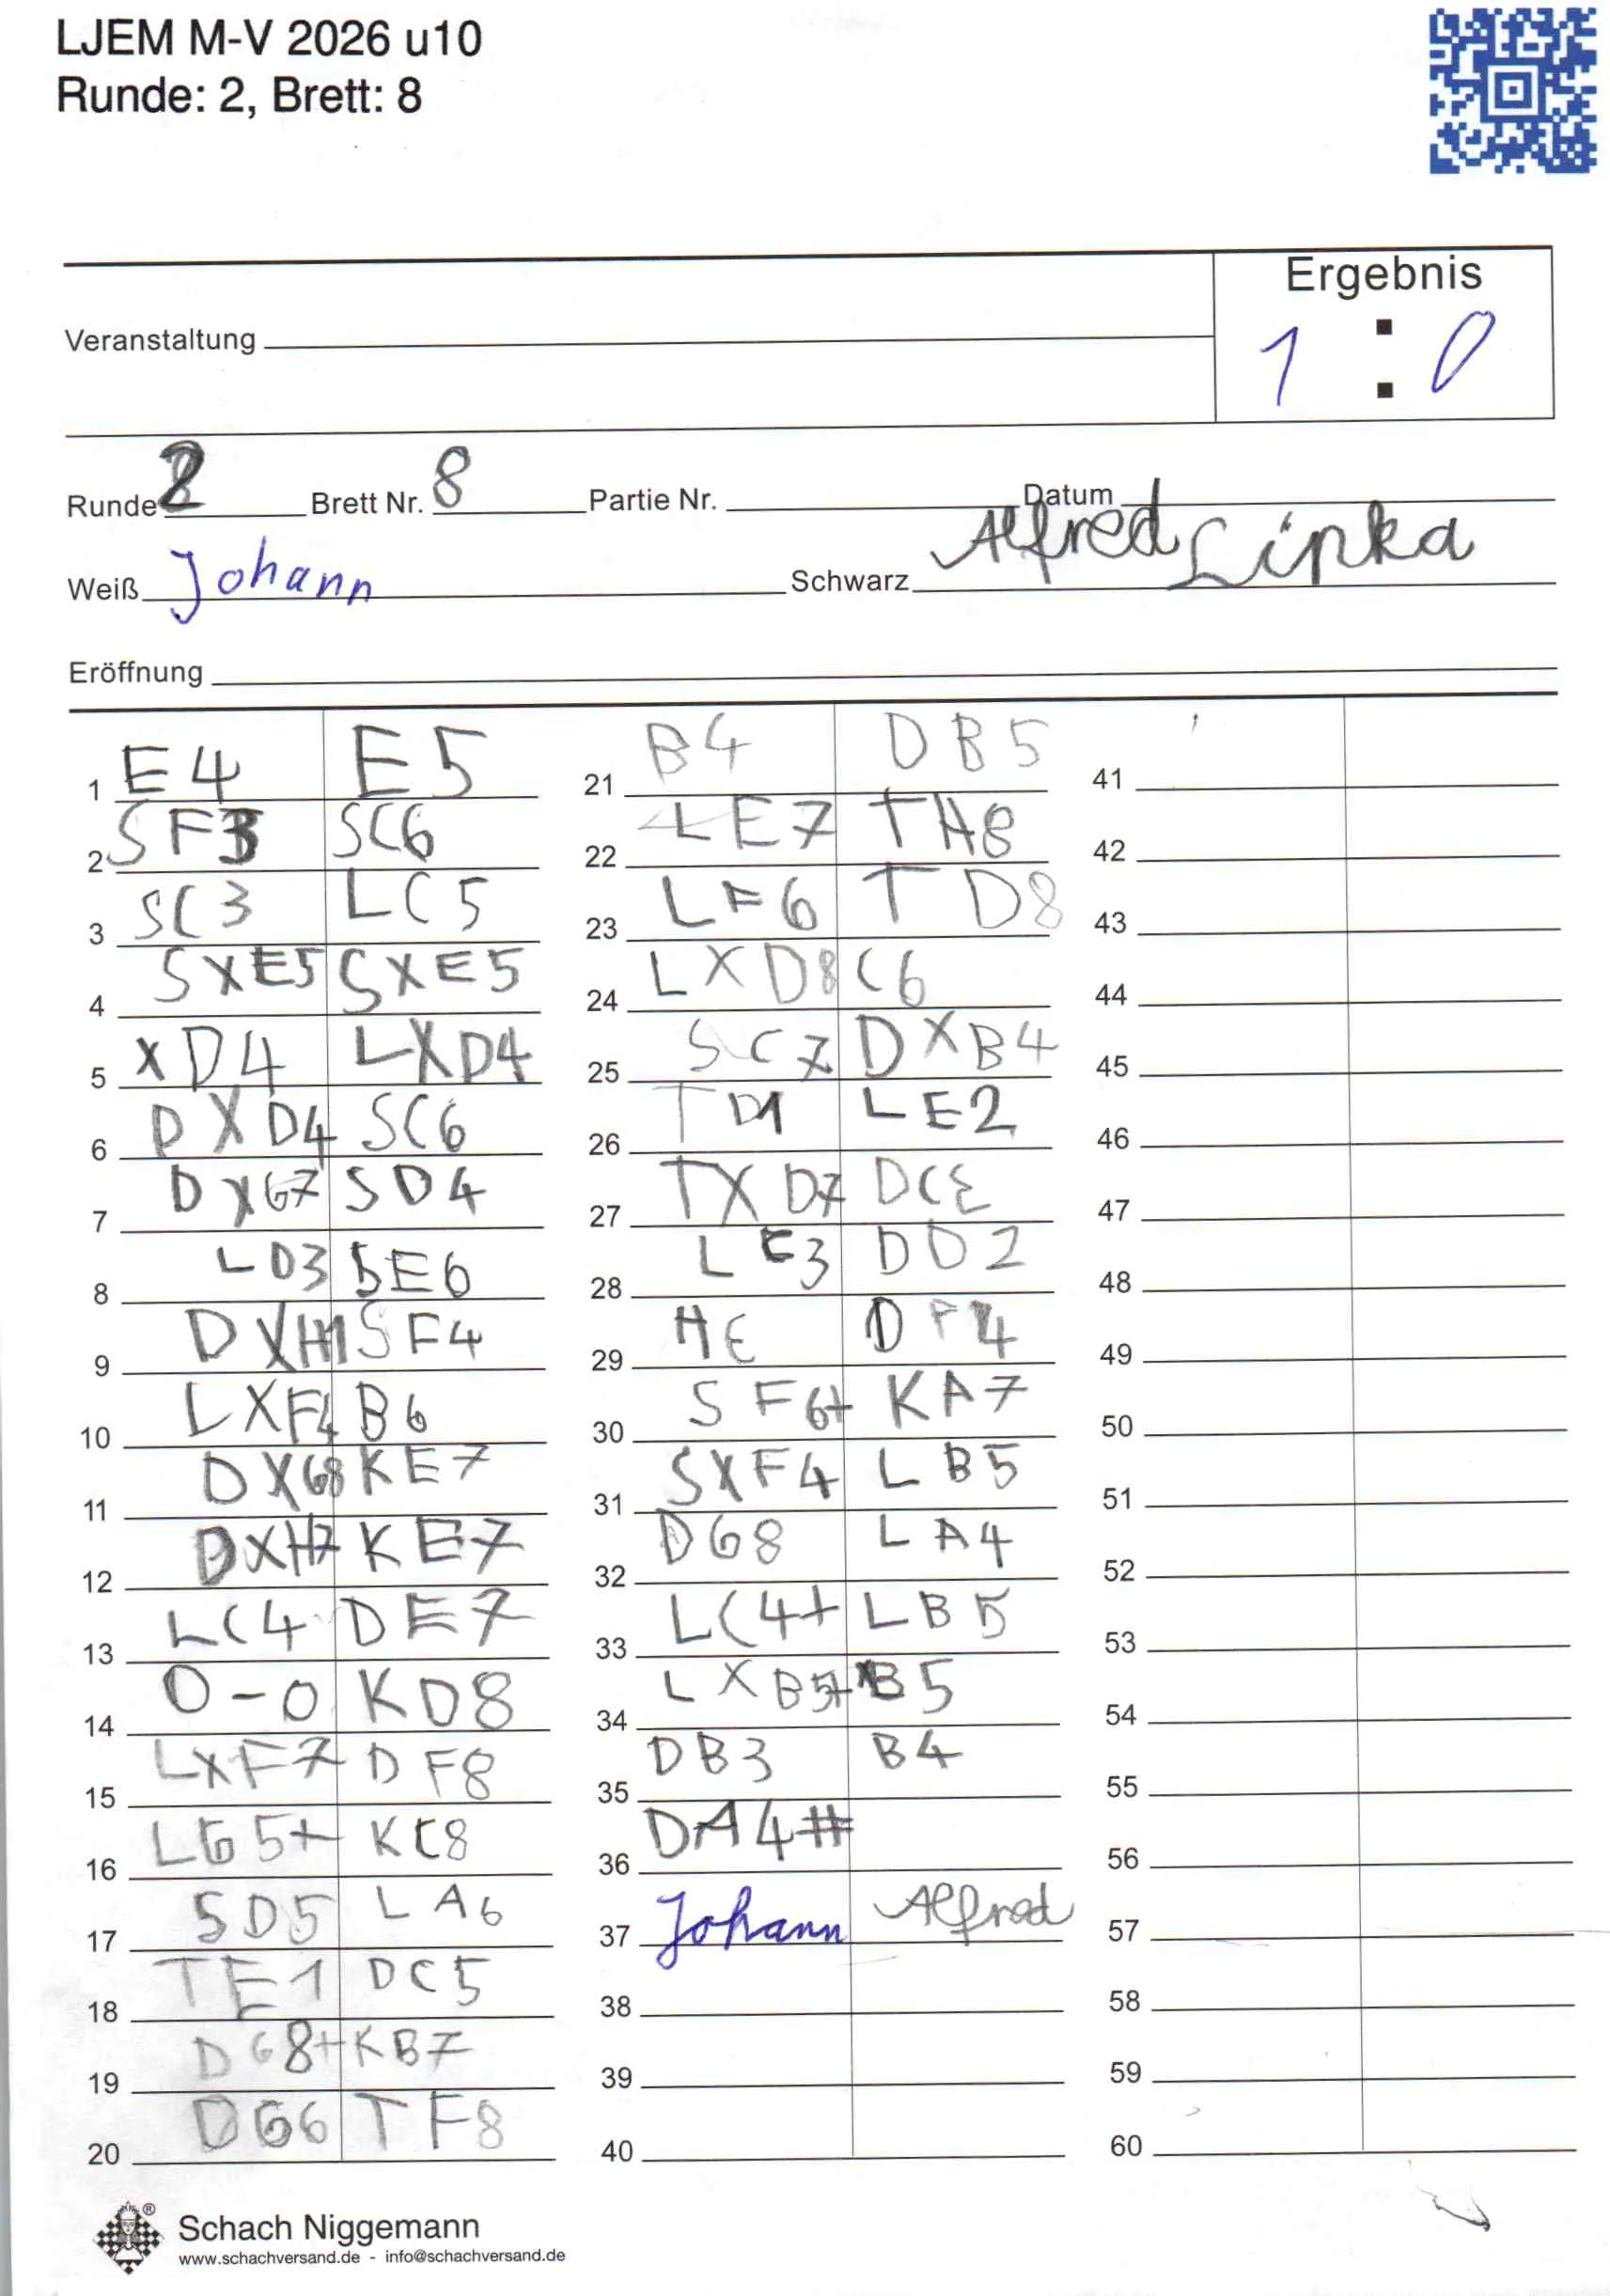 LJEM M-V 2026 u10
Runde: 2, Brett: 8
Ergebnis
Veranstaltung
1 : 0
Runde 2 Brett Nr. 8 Partie Nr. Datum
Weiß Johann Schwarz Alfred Lipka
Eröffnung
1 E4 E5
2 SF3 SC6
3 SC3 LC5
4 SXE5 SXE5
5 XD4 LXD4
6 DXD4 SC6
7 DXG7 SD4
8 LD3 SE6
9 DXH1 SF4
10 LXF4 B6
11 DXG8 KE7
12 DXH7 KE7
13 LC4 DE7
14 0-0 KD8
15 LXF7 DF8
16 LG5+ KC8
17 SD5 LA6
18 TE1 DC5
19 DG8+ KB7
20 DG6 TF8
21 B4 DB5
22 LE7 TA8
23 LF6 TD8
24 LXD8 C6
25 SC7 DXB4
26 TD1 LE2
27 TXD7 DC
28 LE3 DD2
29 H DF4
30 SF6+ KA7
31 SXF4 LB5
32 DG8 LA4
33 LC4+ LB5
34 LXB5+ XB5
35 DB3 B4
36 DA4#
37 Johann Alfred
38
39
40
41
42
43
44
45
46
47
48
49
50
51
52
53
54
55
56
57
58
59
60
Schach Niggemann
www.schachversand.de - info@schachversand.de